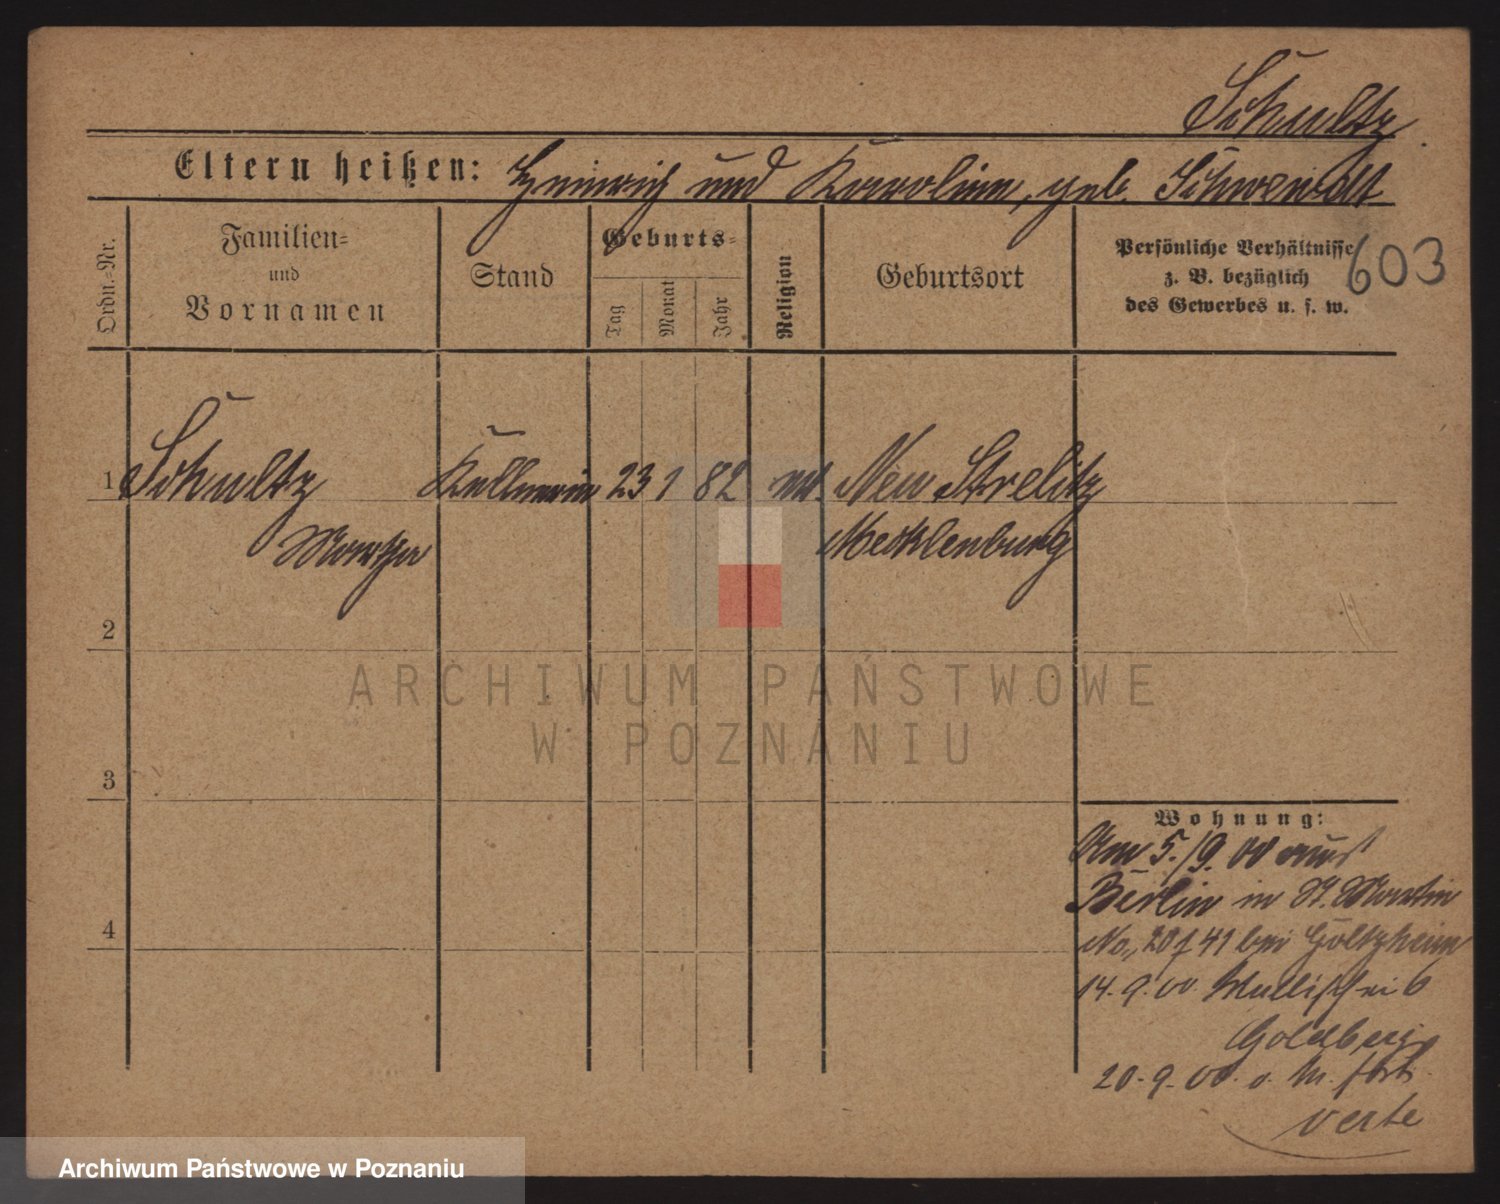 Schultz
Eltern heißen: Heinrich und Karoline, geb. Schwendt
Ordn.-Nr.
Familien-
und
Vornamen
Stand
Geburts-
Tag
Monat
Jahr
Religion
Geburtsort
Persönliche Verhältnisse
z. B. bezüglich
des Gewerbes u. s. w.
603
1 Schultz Kellnerin 23 1 82 Neu Strelitz
Martha Mecklenburg
2
3
4
Wohnung:
Am 5./9. 00 aus
Berlin in St. Martin
No. 41 bei
14.9.00 6
Goldberg
20.9.00. o. M. fort.
verte
ARCHIWUM PAŃSTWOWE
W POZNANIU
Archiwum Państwowe w Poznaniu